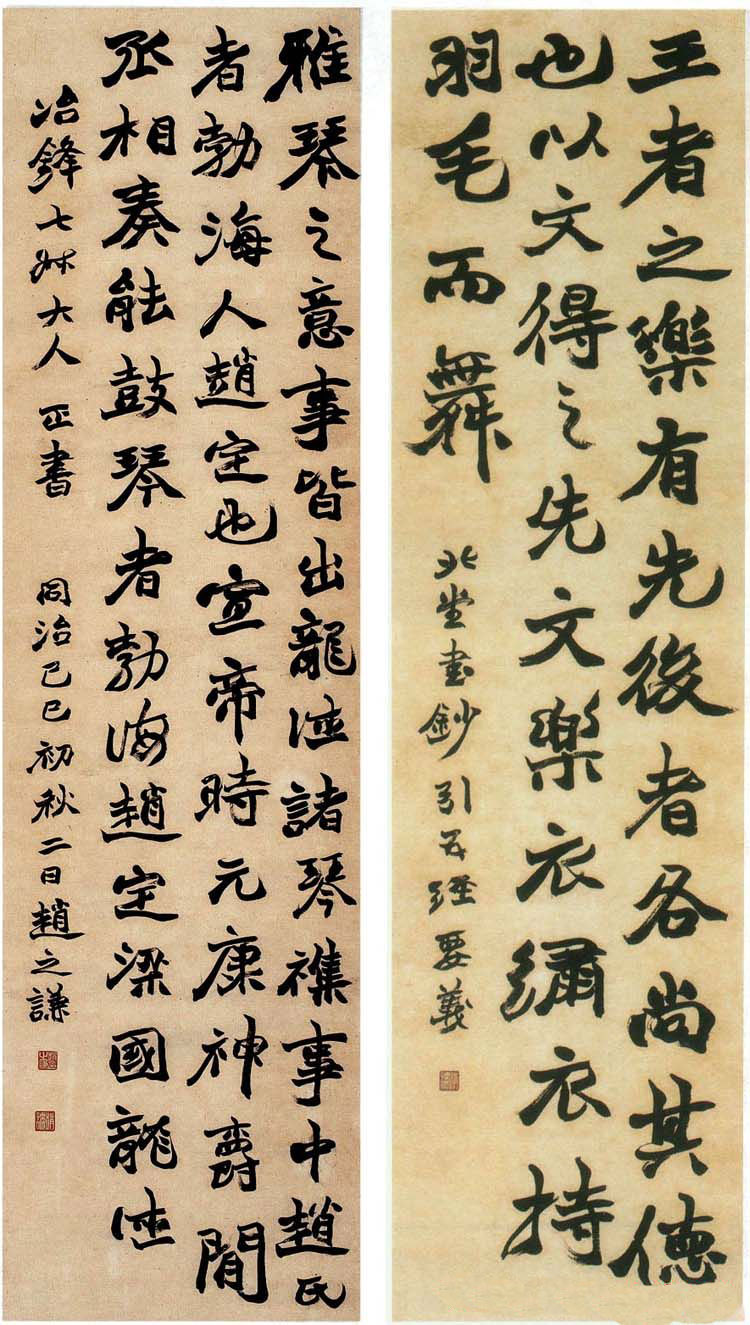 王者之樂有先後者各尚其德
也以文得之先文樂衣繡衣持
羽毛而舞
北堂書鈔引五經要義
雅琴之意事皆出龍德諸琴襍事中趙氏
者勃海人趙定也宣帝時元康神爵閒
丞相奏能鼓琴者勃海趙定梁國龍德
冶鋒七叔大人 正書 同治己巳初秋二日趙之謙